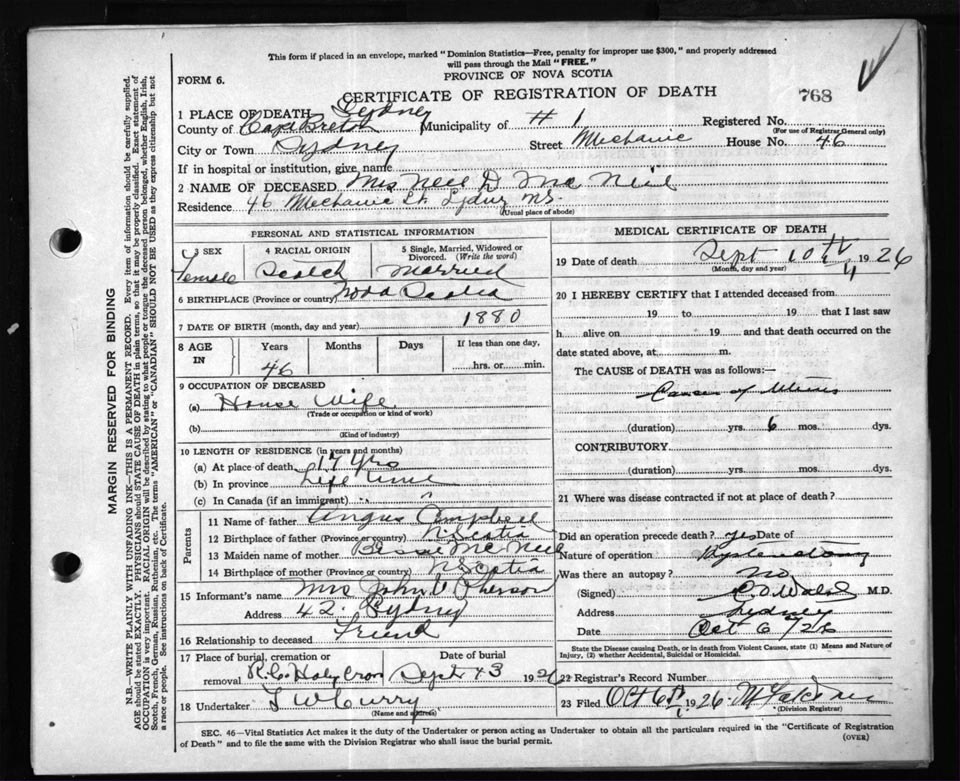 This form if placed in an envelope, marked "Dominion Statistics—Free, penalty for improper use $300," and properly addressed
will pass through the Mail "FREE."
FORM 6.
PROVINCE OF NOVA SCOTIA
CERTIFICATE OF REGISTRATION OF DEATH
768
1 PLACE OF DEATH Sydney
County of Cape Breton Municipality of # 1 Registered No.
(For use of Registrar General only)
City or Town Sydney Street Mechanic House No. 46
If in hospital or institution, give name
2 NAME OF DECEASED Mrs Neil D Mc Neil
Residence 46 Mechanic St Sydney NS.
(Usual place of abode)
PERSONAL AND STATISTICAL INFORMATION
3 SEX 4 RACIAL ORIGIN 5 Single, Married, Widowed or Divorced. (Write the word)
Female Scotch Married
6 BIRTHPLACE (Province or country) Nova Scotia
7 DATE OF BIRTH (month, day and year) 1880
8 AGE IN Years Months Days If less than one day,
46 hrs. or min.
9 OCCUPATION OF DECEASED
(a) House Wife
(Trade or occupation or kind of work)
(b)
(Kind of industry)
10 LENGTH OF RESIDENCE (in years and months)
(a) At place of death 17 yrs
(b) In province Life time
(c) In Canada (if an immigrant)
Parents
11 Name of father Angus Campbell
12 Birthplace of father (Province or country) N Scotia
13 Maiden name of mother Bessie Mc Neil
14 Birthplace of mother (Province or country) N Scotia
15 Informant's name Mrs John Pherson
Address 42. Sydney
16 Relationship to deceased Friend
17 Place of burial, cremation or removal Date of burial
R.C. Holy Cross Sept 13 1926
18 Undertaker T W Curry
(Name and address)
MEDICAL CERTIFICATE OF DEATH
19 Date of death Sept 10th 1926
(Month, day and year)
20 I HEREBY CERTIFY that I attended deceased from
19 to 19 that I last saw
h alive on 19 and that death occurred on
date stated above, at m.
The CAUSE of DEATH was as follows:—
Cancer of Uterus
(duration) yrs. 6 mos. dys.
CONTRIBUTORY
(duration) yrs. mos. dys.
21 Where was disease contracted if not at place of death?
Did an operation precede death? yes Date of
Nature of operation Hysterectomy
Was there an autopsy? no
(Signed) Walsh M.D.
Address Sydney
Date Oct 6/26
State the Disease causing Death, or in death from Violent Causes, state (1) Means and Nature of
Injury, (2) whether Accidental, Suicidal or Homicidal.
22 Registrar's Record Number
23 Filed Oct 6th 1926
(Division Registrar)
SEC. 46—Vital Statistics Act makes it the duty of the Undertaker or person acting as Undertaker to obtain all the particulars required in the "Certificate of Registration
of Death" and to file the same with the Division Registrar who shall issue the burial permit.
(OVER)
MARGIN RESERVED FOR BINDING
N.B.—WRITE PLAINLY WITH UNFADING INK—THIS IS A PERMANENT RECORD. Every item of information should be carefully supplied.
AGE should be stated EXACTLY. PHYSICIANS should STATE CAUSE OF DEATH in plain terms, so that it may be properly classified. Exact statement of
OCCUPATION is very important. RACIAL ORIGIN will be described by stating to what people or tongue the deceased person belonged, whether English, Irish,
Scotch, French, German, Russian, Ruthenian, etc. The terms "AMERICAN" or "CANADIAN" SHOULD NOT BE USED as they express citizenship but not
a race or people. See instructions on back of Certificate.